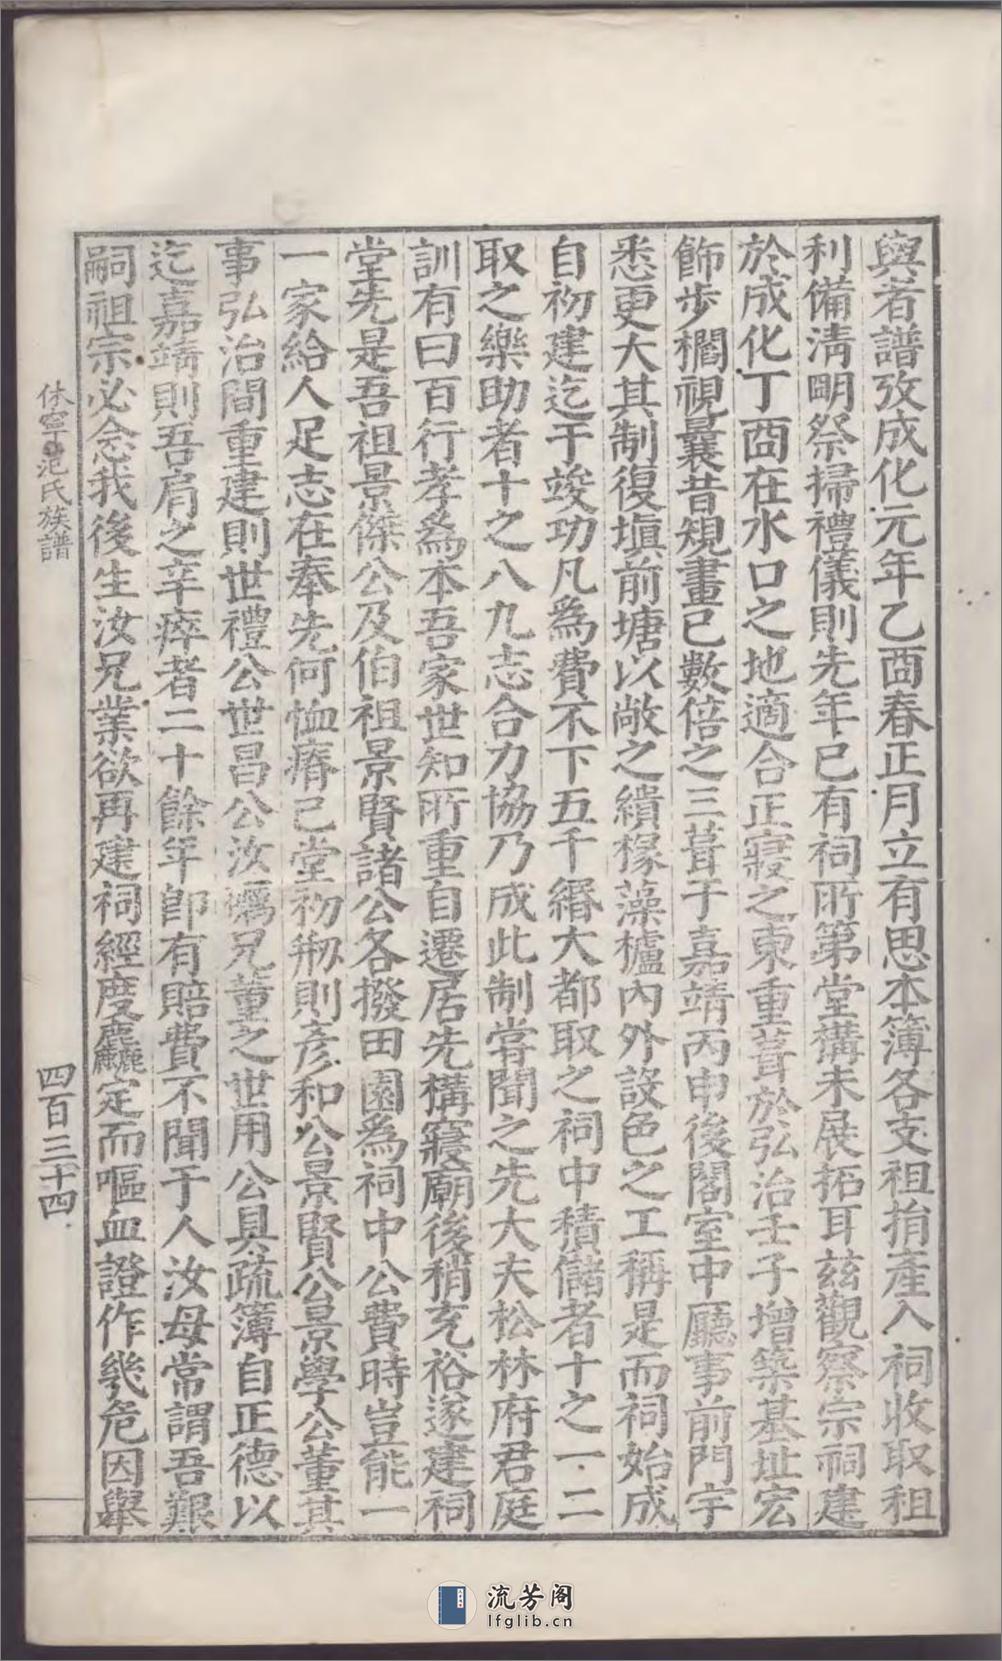 與者譜攷成化元年乙酉春正月立有思本簿各支祖捐產入祠收取租
利備淸明祭掃禮儀則先年已有祠所第堂構未展拓耳兹觀察宗祠建
於成化丁酉在水口之地適合正寢之東重葺於弘治壬子增築基址宏
飾步櫩視曩昔規畫已數倍之三葺于嘉靖丙申後閣室中廳事前門宇
悉更大其制復塡前塘以敞之繢椽藻櫨內外設色之工稱是而祠始成
自初建迄于竣功凡爲費不下五千緡大都取之祠中積儲者十之一二
取之樂助者十之八九志合力協乃成此制嘗聞之先大夫松林府君庭
訓有曰百行孝爲本吾家世知所重自遷居先構寢廟後稍充裕遂建祠
堂先是吾祖景傑公及伯祖景賢諸公各撥田園爲祠中公費時豈能一
一家給人足志在奉先何恤瘠己堂初剏則彥和公景賢公景學公董其
事弘治間重建則世禮公世昌公汝礪兄董之世用公具疏簿自正德以
迄嘉靖則吾肩之辛瘁者二十餘年卽有賠費不聞于人汝母常謂吾艱
嗣祖宗必念我後生汝兄業欲再建祠經度麤定而嘔血證作幾危因舉
休寧范氏族譜
四百三十四
流芳阁
lfglib.cn